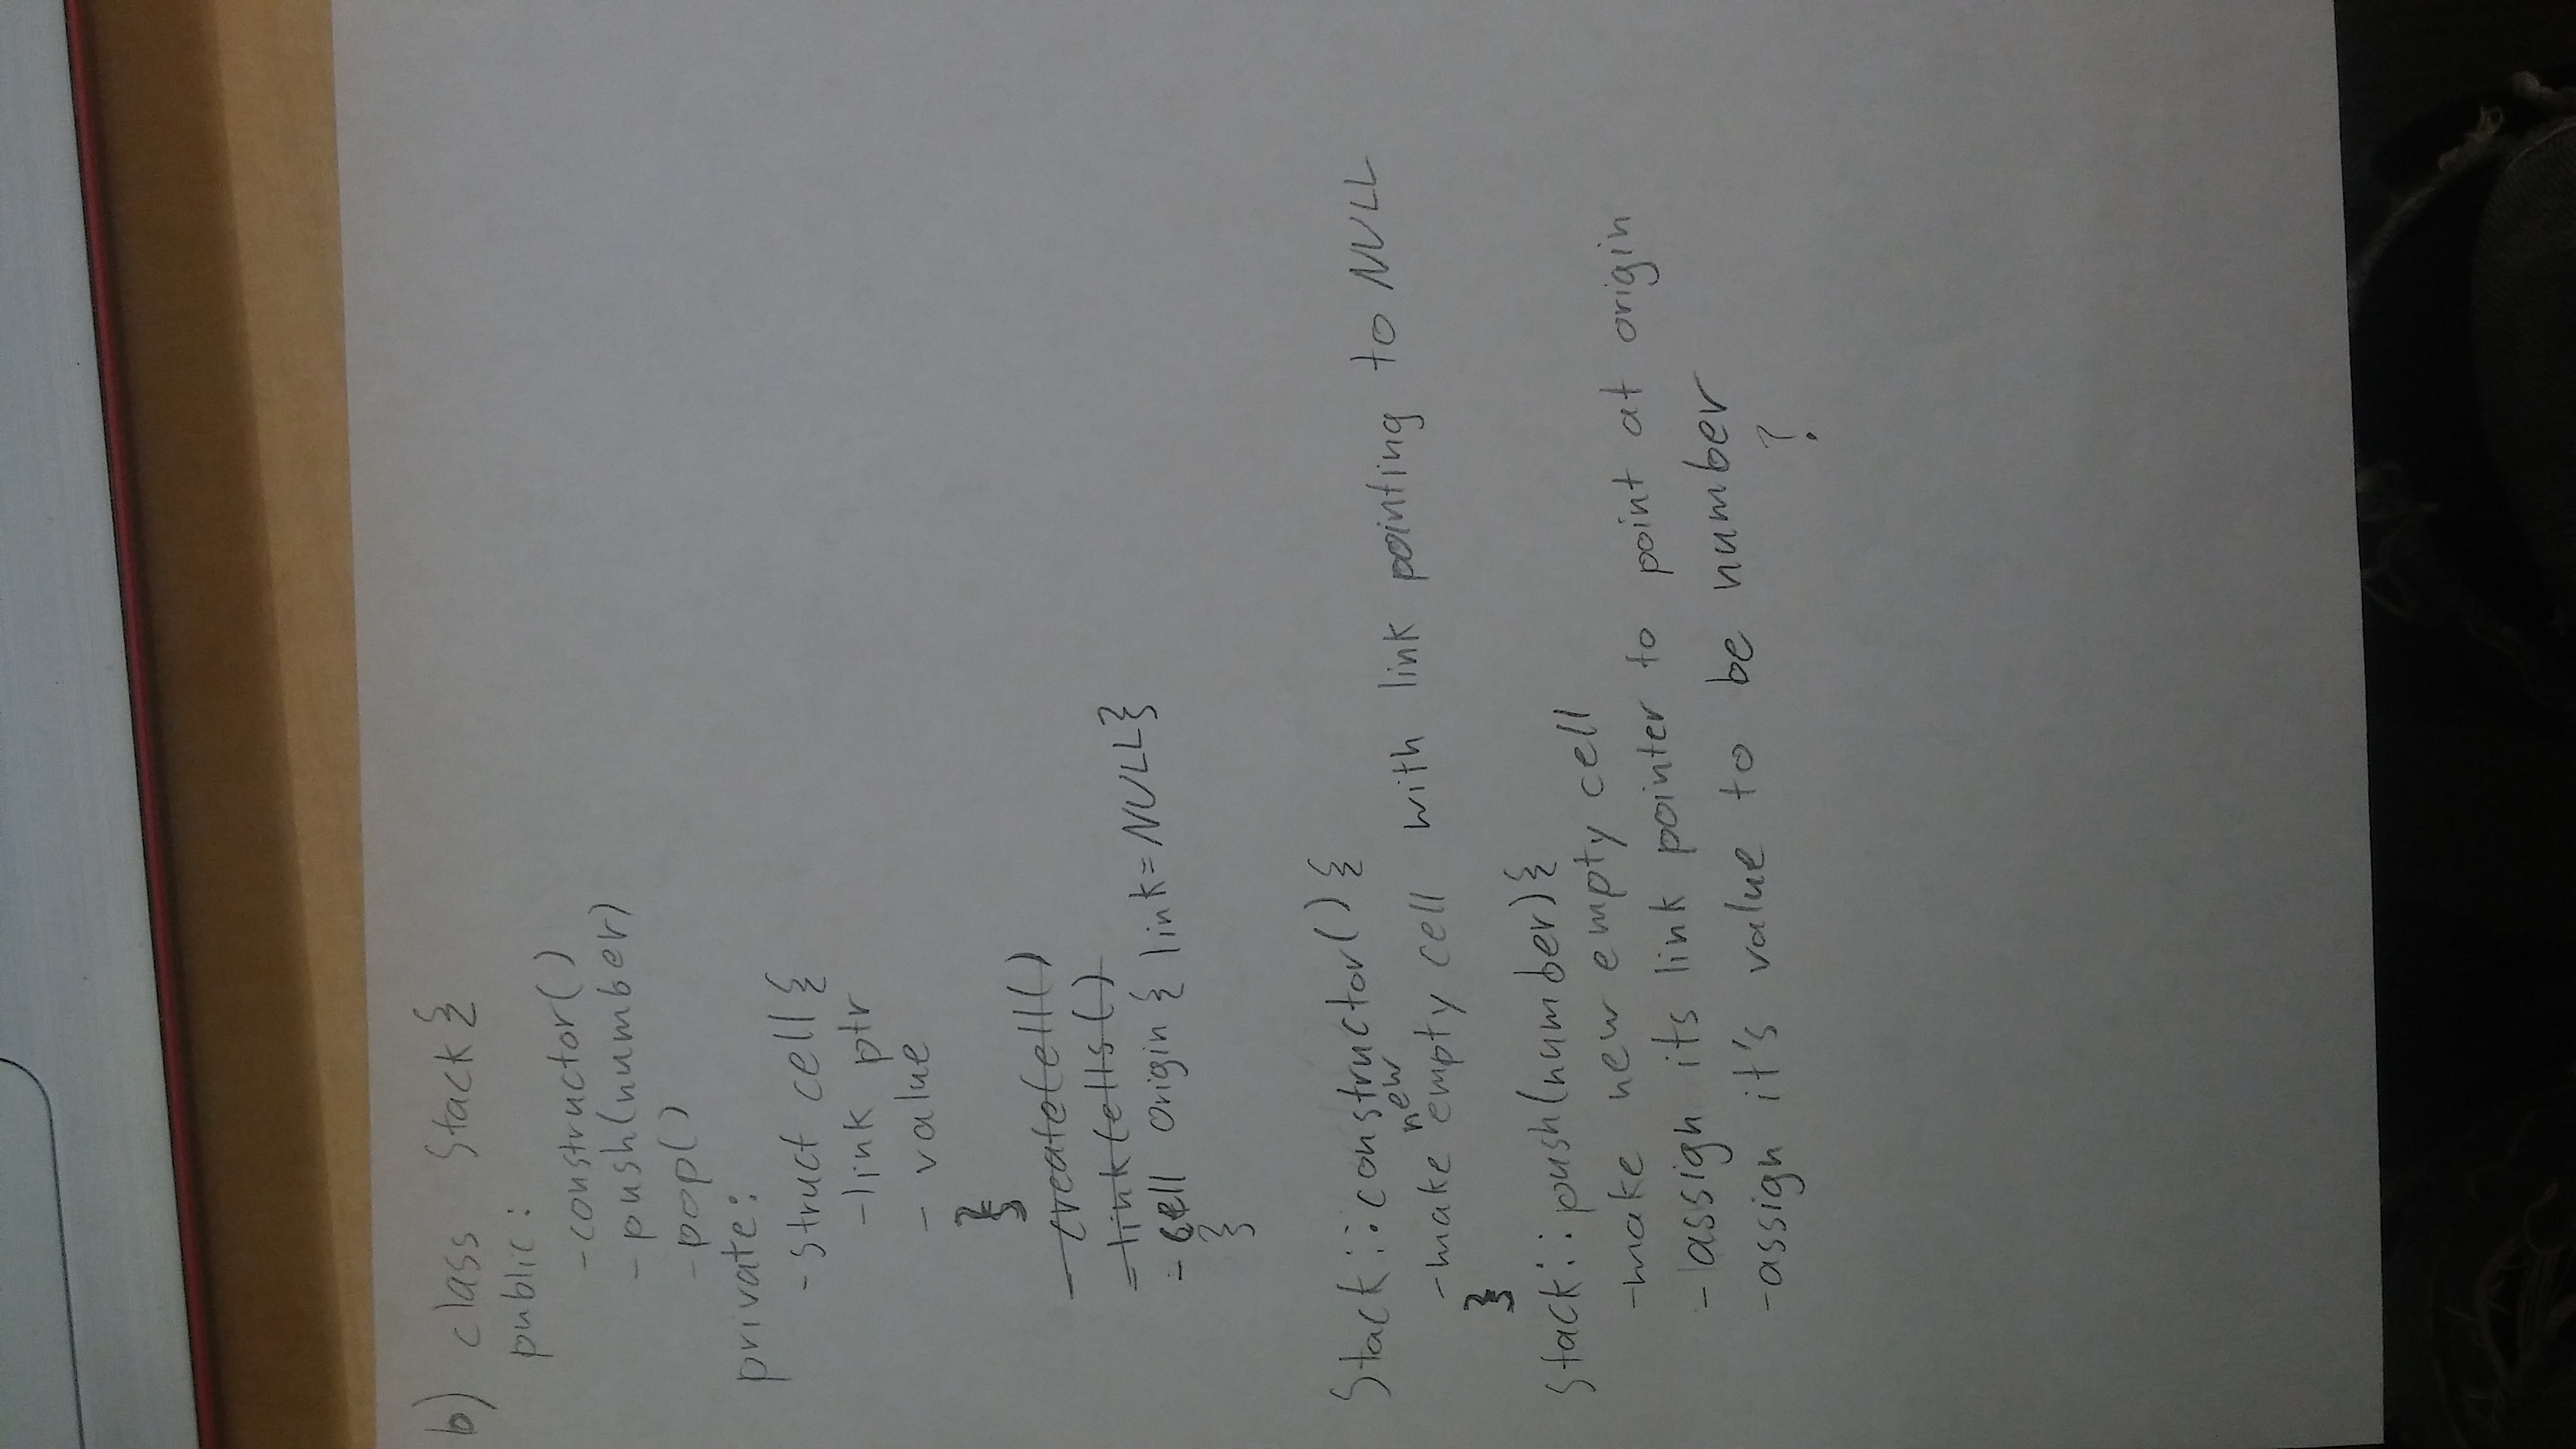 b) class Stack {
public:
- constructor()
- push(number)
- pop()
private:
- struct cell {
- link ptr
- value
}
- createCell()
- linkCells()
- cell origin { link = NULL }
}
Stack::constructor() {
- make new empty cell with link pointing to NULL
}
Stack::push(number) {
- make new empty cell
- assign its link pointer to point at origin
- assign it's value to be number
?